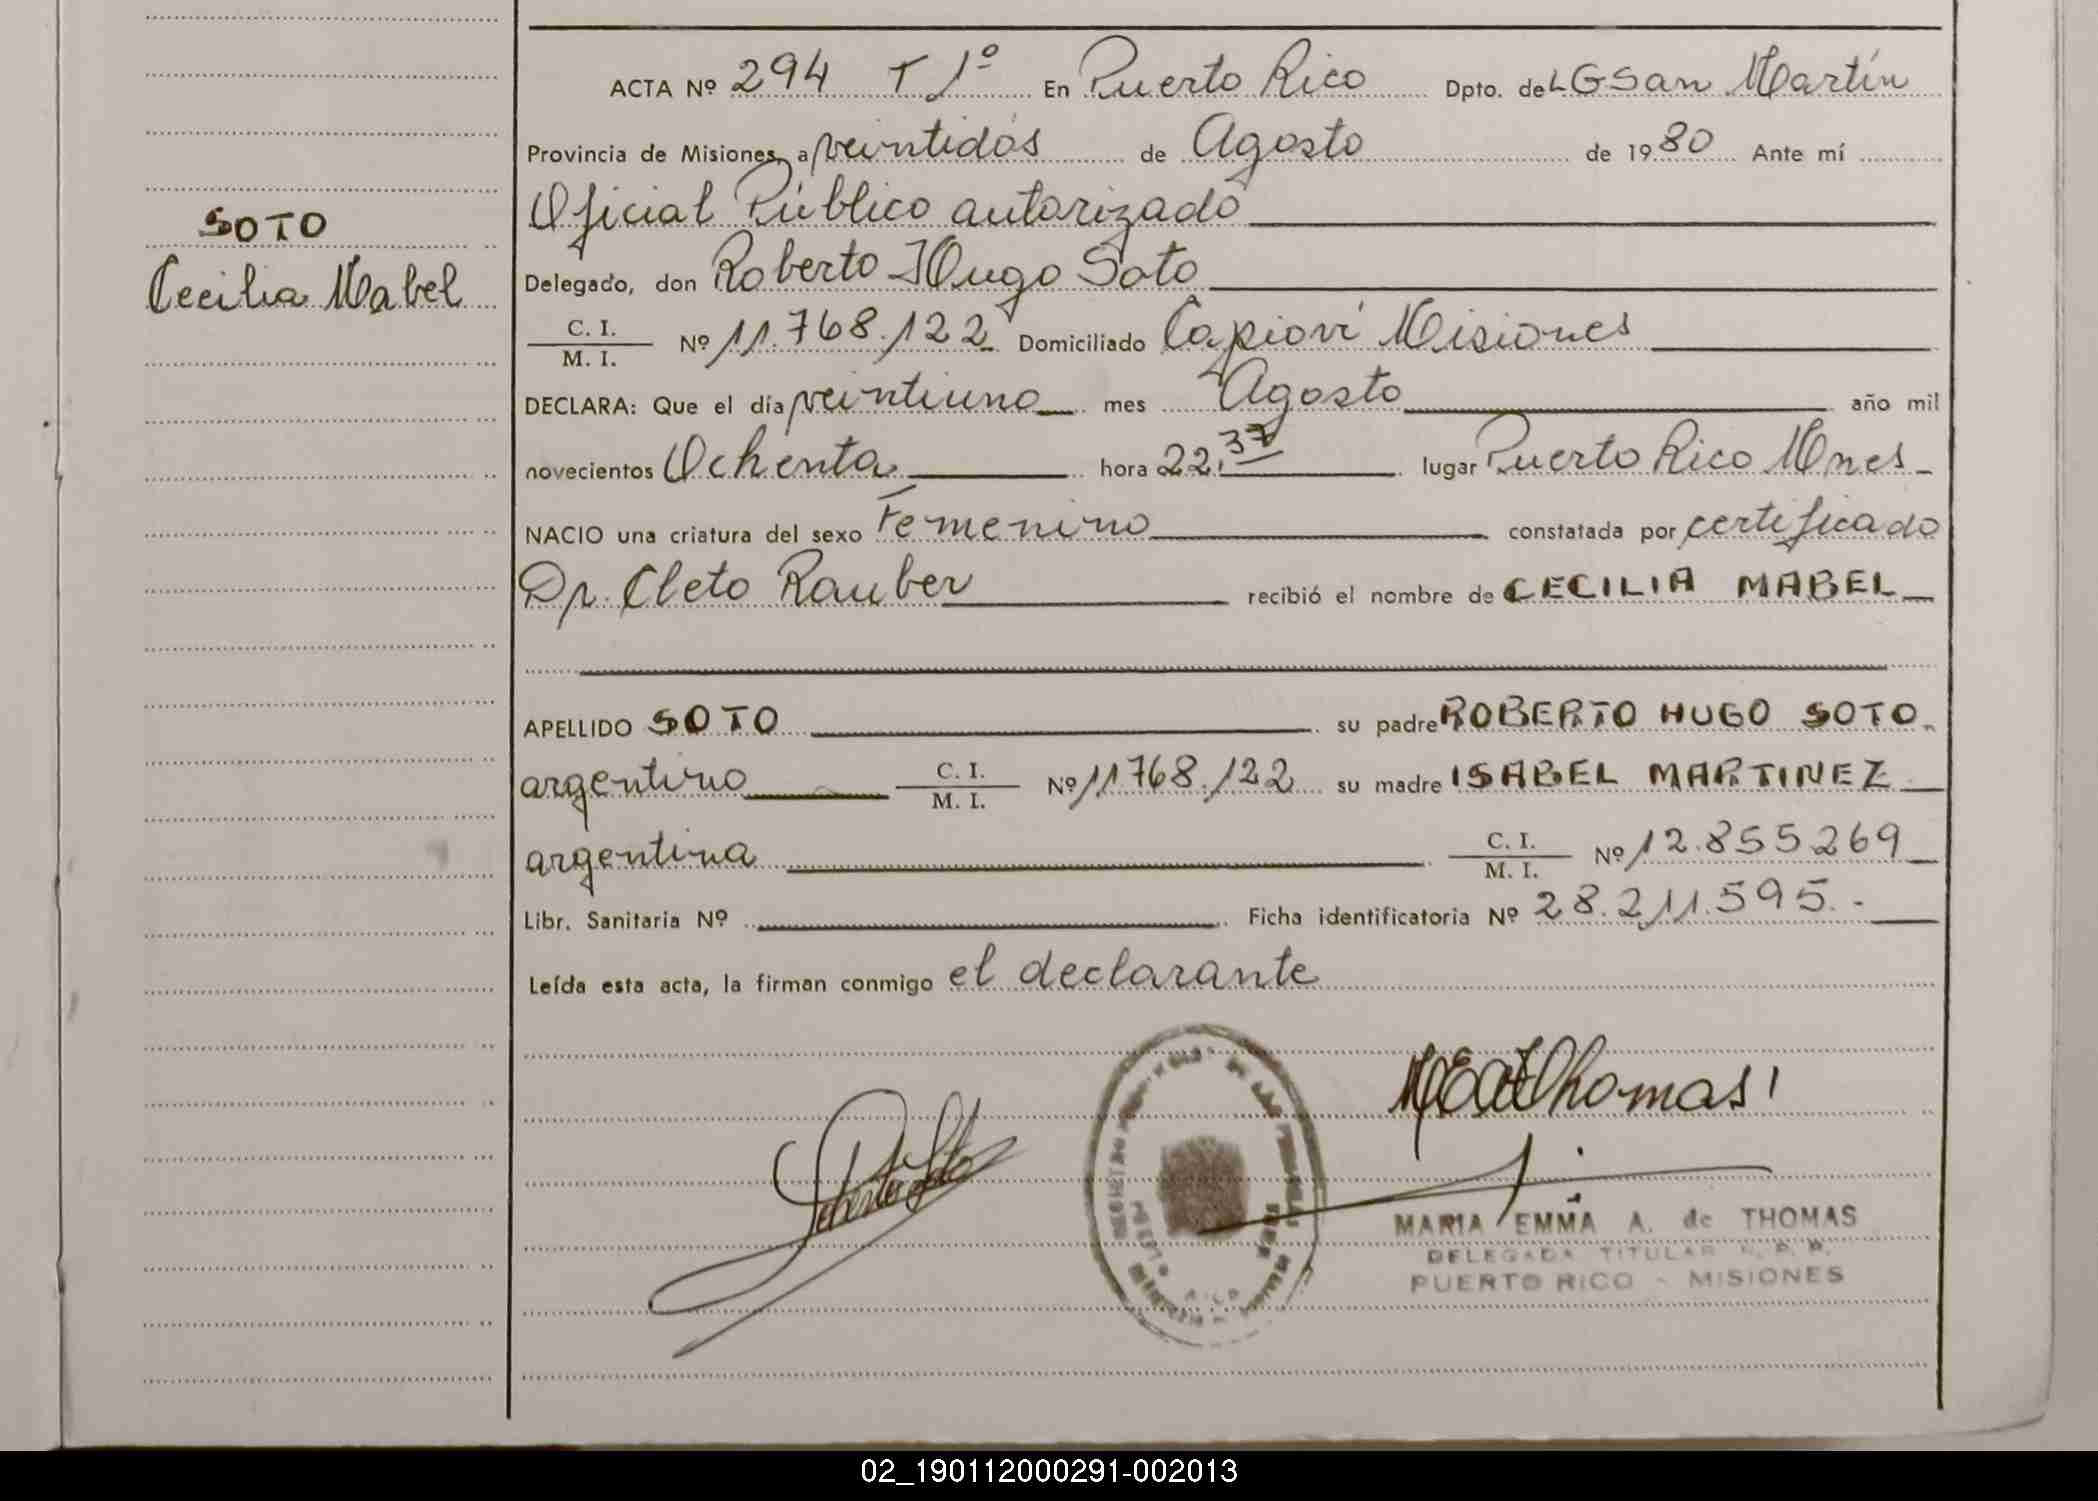 SOTO
Cecilia Mabel
ACTA Nº 294 T 1º En Puerto Rico Dpto. de LG San Martín
Provincia de Misiones, a veintidós de Agosto de 1980 Ante mí
Oficial Público autorizado
Delegado, don Roberto Hugo Soto
C. I.
M. I. Nº 11.768.122 Domiciliado Capioví Misiones
DECLARA: Que el día veintiuno mes Agosto año mil
novecientos Ochenta hora 22,37 lugar Puerto Rico Mnes
NACIO una criatura del sexo Femenino constatada por certificado
Dr. Cleto Rauber recibió el nombre de CECILIA MABEL
APELLIDO SOTO su padre ROBERTO HUGO SOTO.
argentino C. I. M. I. Nº 11768.122 su madre ISABEL MARTINEZ
argentina C. I. M. I. Nº 12.855269
Libr. Sanitaria Nº Ficha identificatoria Nº 28.211.595.-
Leída esta acta, la firman conmigo el declarante
MEAdThomas
Roberto Soto
MARIA EMMA A. de THOMAS
DELEGADA TITULAR R. P. P.
PUERTO RICO - MISIONES
02_190112000291-002013